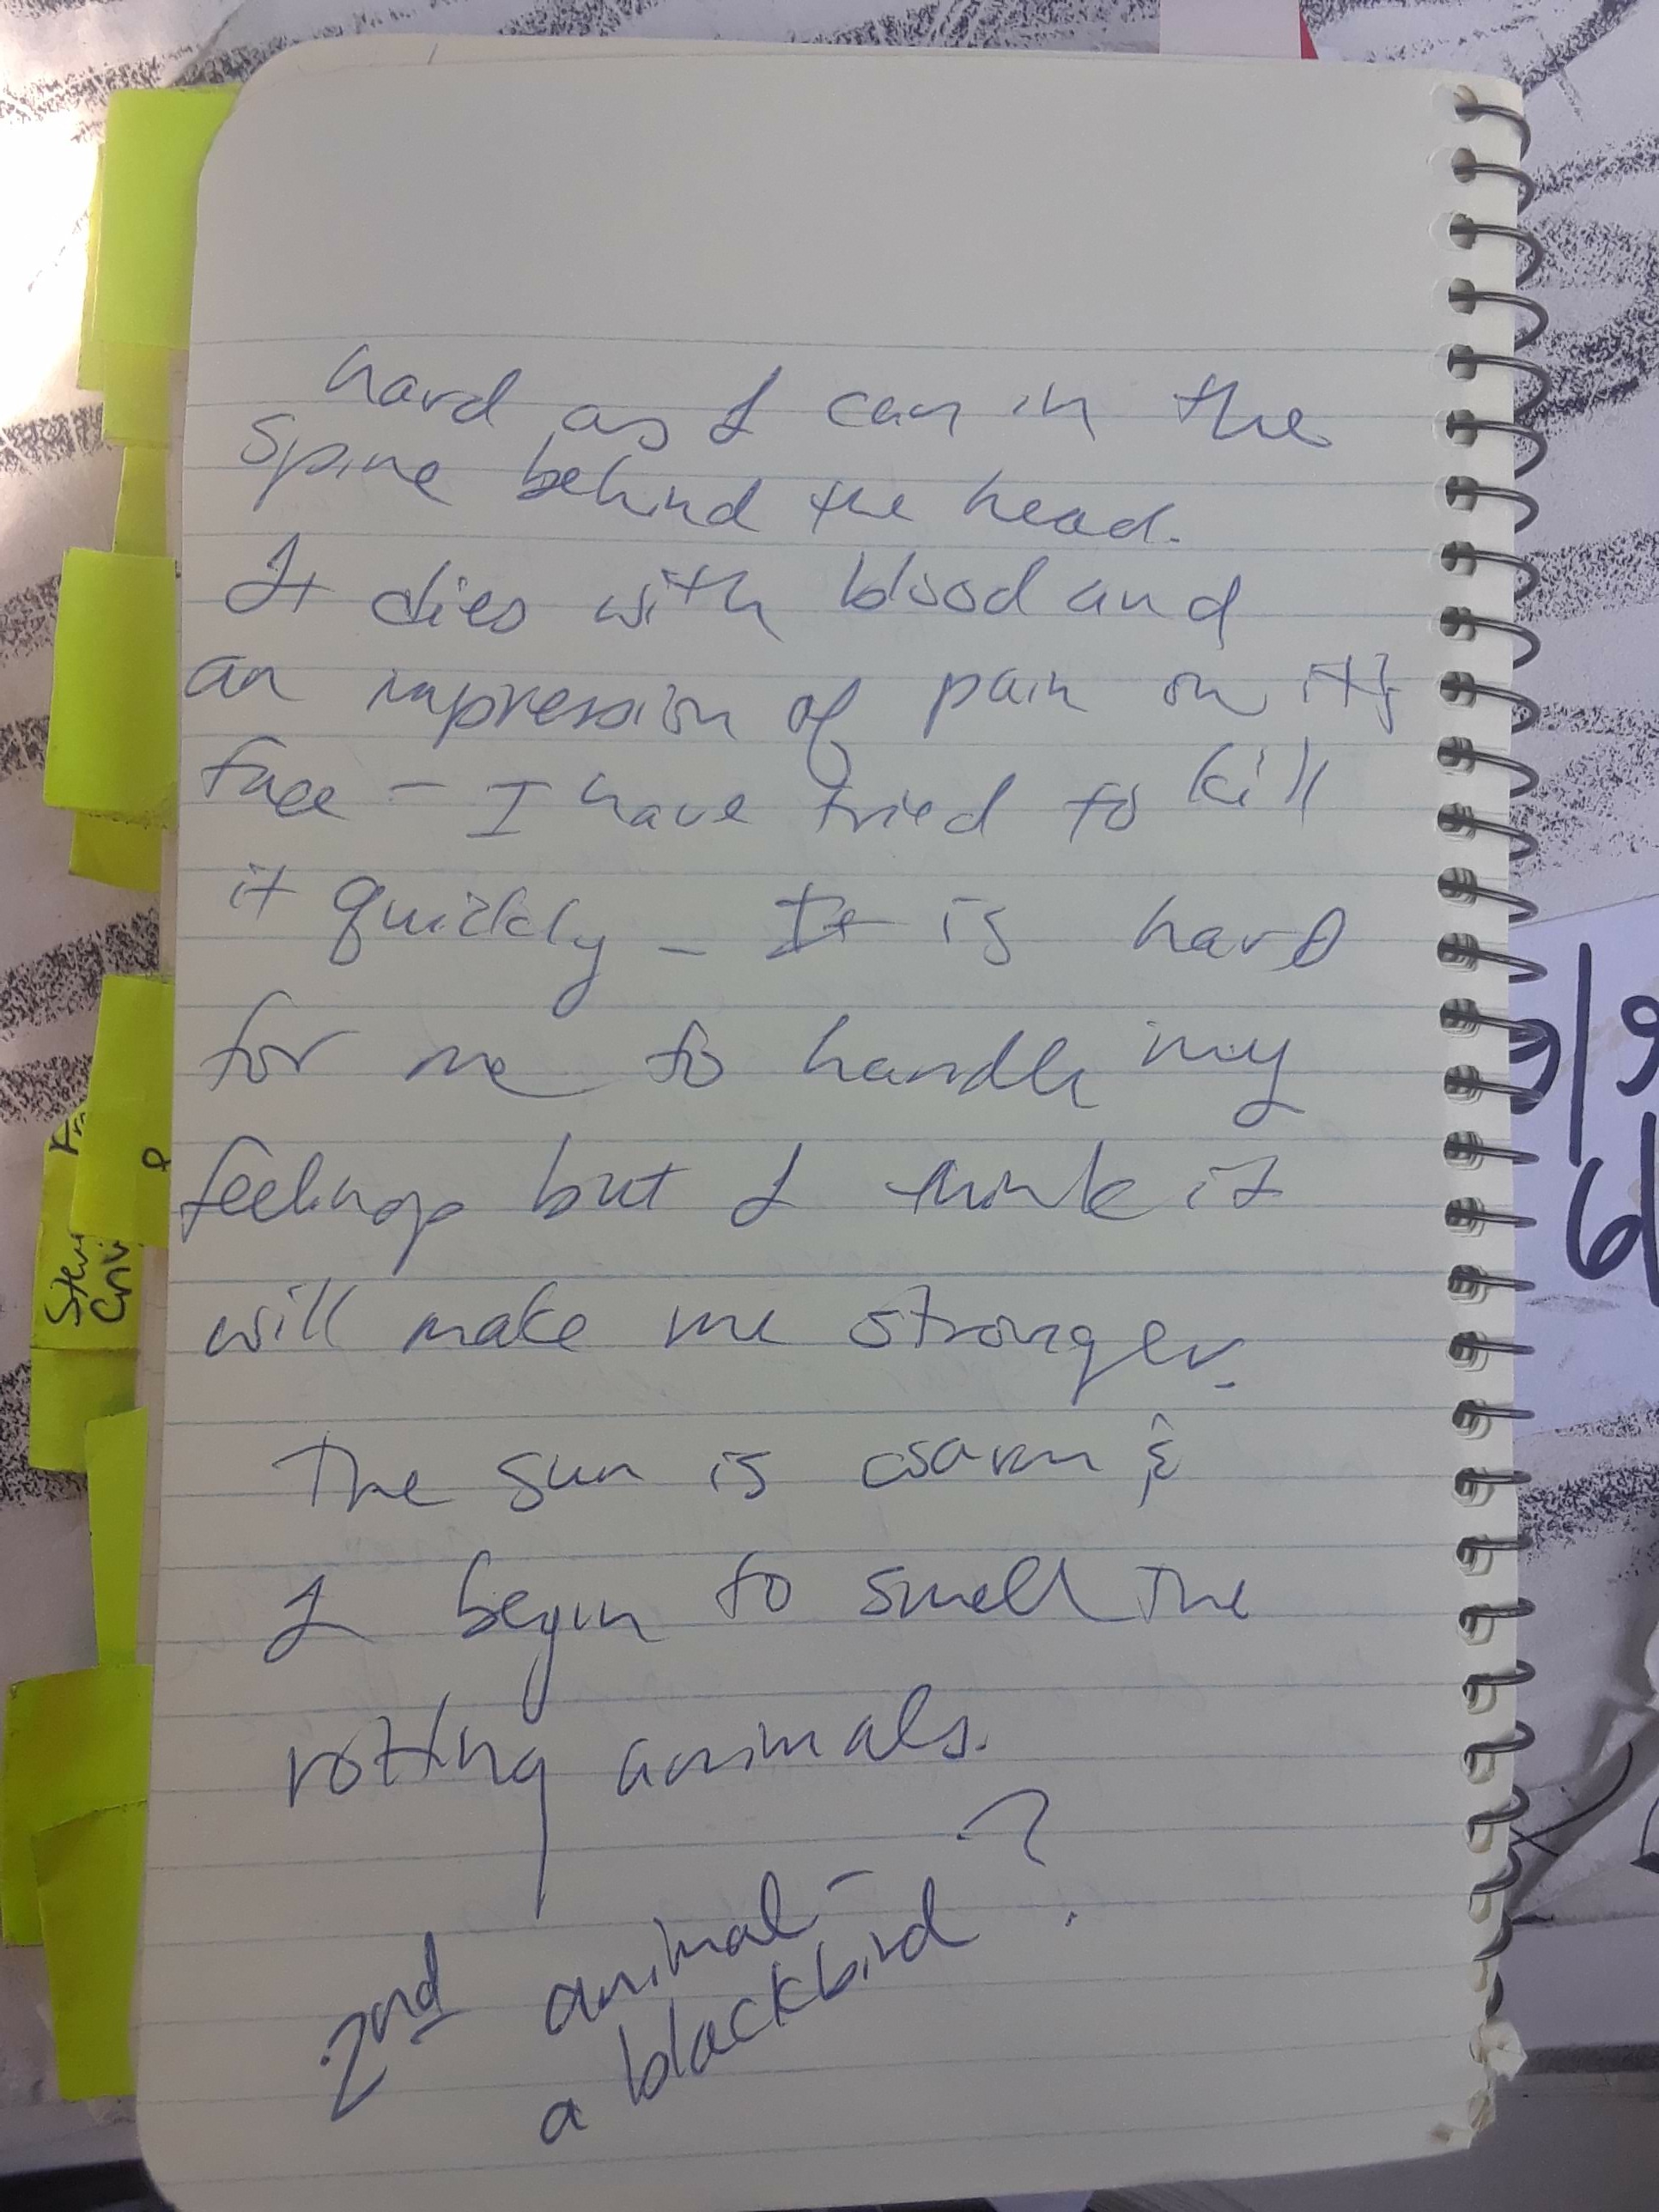 hard as I can in the
spine behind the head.
It dies with blood and
an impression of pain on its
face – I have tried to kill
it quickly – It is hard
for me to handle my
feelings but I think it
will make me stronger.
The sun is warm &
I begin to smell the
rotting animals.
2nd animal –
a blackbird ?